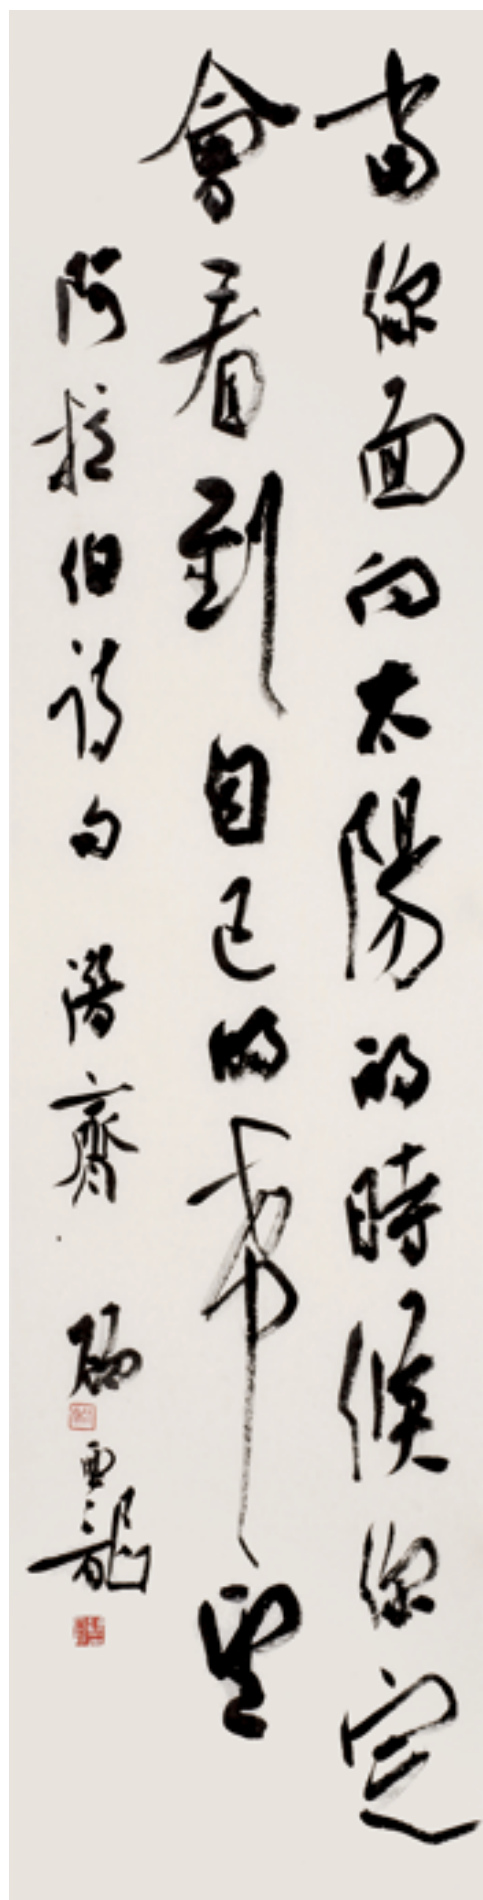 當你面向太陽的時候你定
會看到自己的希望
阿拉伯詩句 潛齋 雲龍